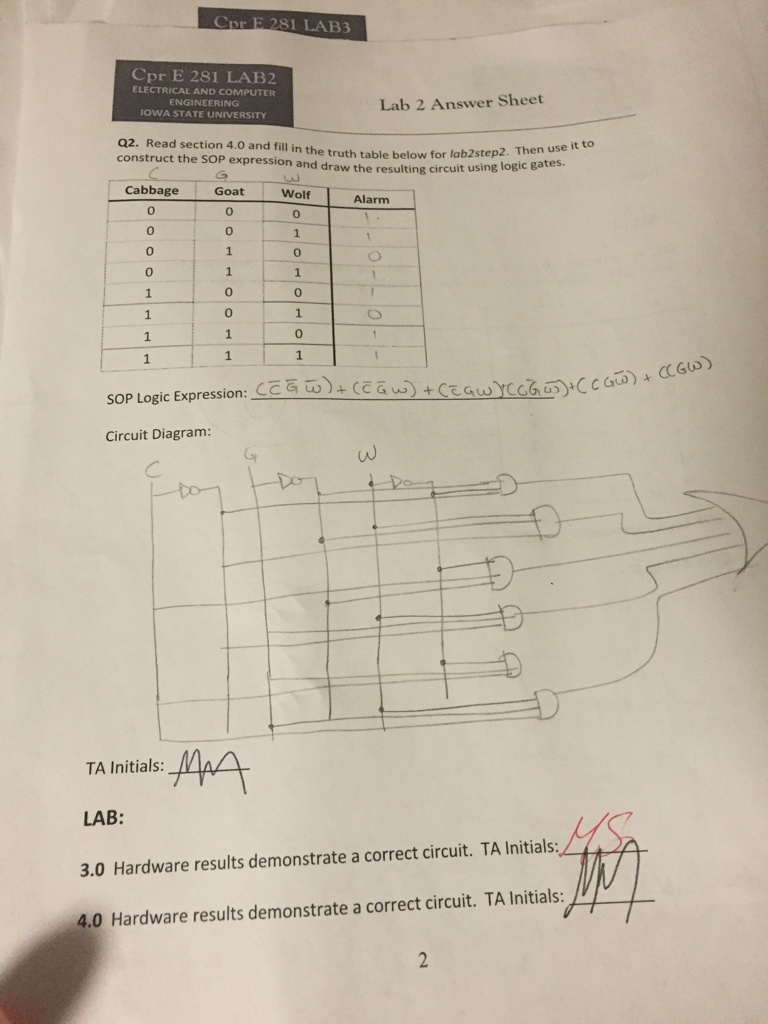 Cpr E 281 LAB3
Cpr E 281 LAB2
ELECTRICAL AND COMPUTER
ENGINEERING
IOWA STATE UNIVERSITY
Lab 2 Answer Sheet
Q2. Read section 4.0 and fill in the truth table below for lab2step2. Then use it to
construct the SOP expression and draw the resulting circuit using logic gates.
C G W
Cabbage Goat Wolf Alarm
0 0 0 1
0 0 1 1
0 1 0 0
0 1 1 1
1 0 0 1
1 0 1 0
1 1 0 1
1 1 1 1
SOP Logic Expression: (C̅ G̅ W̅) + (C̅ G̅ W) + (C̅ G W)+(C G̅ W̅)+(C G W̅) + (CGW)
Circuit Diagram:
C G W
TA Initials:
LAB:
3.0 Hardware results demonstrate a correct circuit. TA Initials: MS
4.0 Hardware results demonstrate a correct circuit. TA Initials:
2